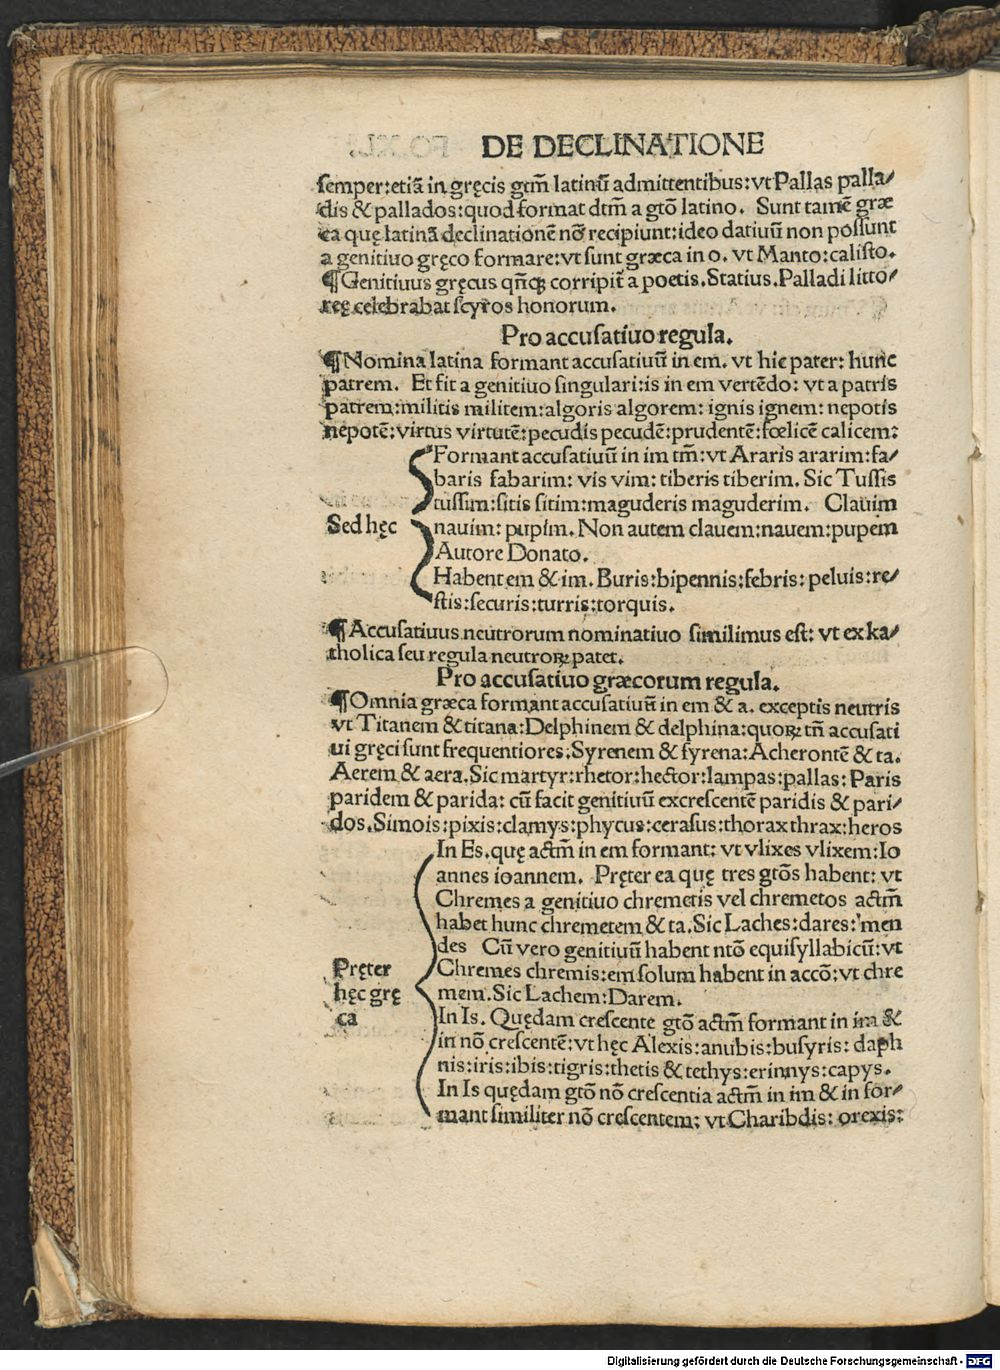 DE DECLINATIONE
semper:etiã in gręcis gtm̃ latinũ admittentibus:vt Pallas palla⸗
dis & pallados:quod format dtm̃ a gtõ latino. Sunt tamẽ græ
ca quę latinã declinationẽ nõ recipiunt:ideo datiuũ non possunt
a genitiuo gręco formare:vt sunt græca in o. vt Manto:calisto.
¶Genitiuus gręcus qñqꝫ corripit̃ a poetis.Statius.Palladi litto⸗
reę celebrabat scyros honorum.
Pro accusatiuo regula.
¶Nomina latina formant accusatiuũ in em. vt hic pater: hunc
patrem. Et fit a genitiuo singulari:is in em vertẽdo: vt a patris
patrem:militis militem:algoris algorem: ignis ignem: nepotis
nepotẽ:virtus virtutẽ:pecudis pecudẽ:prudentẽ:fœlicẽ calicem:
Formant accusatiuũ in im tm̃:vt Araris ararim:fa⸗
baris fabarim: vis vim: tiberis tiberim. Sic Tussis
tussim:sitis sitim:maguderis maguderim. Clauim
Sed hęc nauim: pupim. Non autem clauem:nauem:pupem
Autore Donato.
Habent em & im. Buris:bipennis:febris: peluis:re⸗
stis:securis:turris:torquis.
¶Accusatiuus neutrorum nominatiuo similimus est: vt ex ka⸗
tholica seu regula neutroꝝ patet.
Pro accusatiuo græcorum regula.
¶Omnia græca formant accusatiuũ in em & a. exceptis neutris
vt Titanem & titana:Delphinem & delphina:quoꝝ tñ accusati
ui gręci sunt frequentiores.Syrenem & syrena:Acherontẽ & ta.
Aerem & aera.Sic martyr:rhetor:hector:lampas:pallas: Paris
paridem & parida: cũ facit genitiuũ excrescentẽ paridis & pari⸗
dos.Simois:pixis:clamys:phycus:cerasus:thorax thrax:heros
In Es.quę actm̃ in em formant: vt vlixes vlixem:Io
annes ioannem. Pręter ea quę tres gtõs habent: vt
Chremes a genitiuo chremetis vel chremetos actm̃
habet hunc chremetem & ta.Sic Laches:dares:men
des Cũ vero genitiuũ habent ntõ equisyllabicũ:vt
Pręter Chremes chremis:em solum habent in accõ:vt chre
hęc grę mem.Sic Lachem:Darem.
ca In Is. Quędam crescente gtõ actm̃ formant in im &
in nõ crescentẽ:vt hęc Alexis:anubis:busyris: daph
nis:iris:ibis:tigris:thetis & tethys:erinnys:capys.
In Is quędam gtõ nõ crescentia actm̃ in im & in for⸗
mant similiter nõ crescentem: vt Charibdis: orexis:
Digitalisierung gefördert durch die Deutsche Forschungsgemeinschaft - DFG